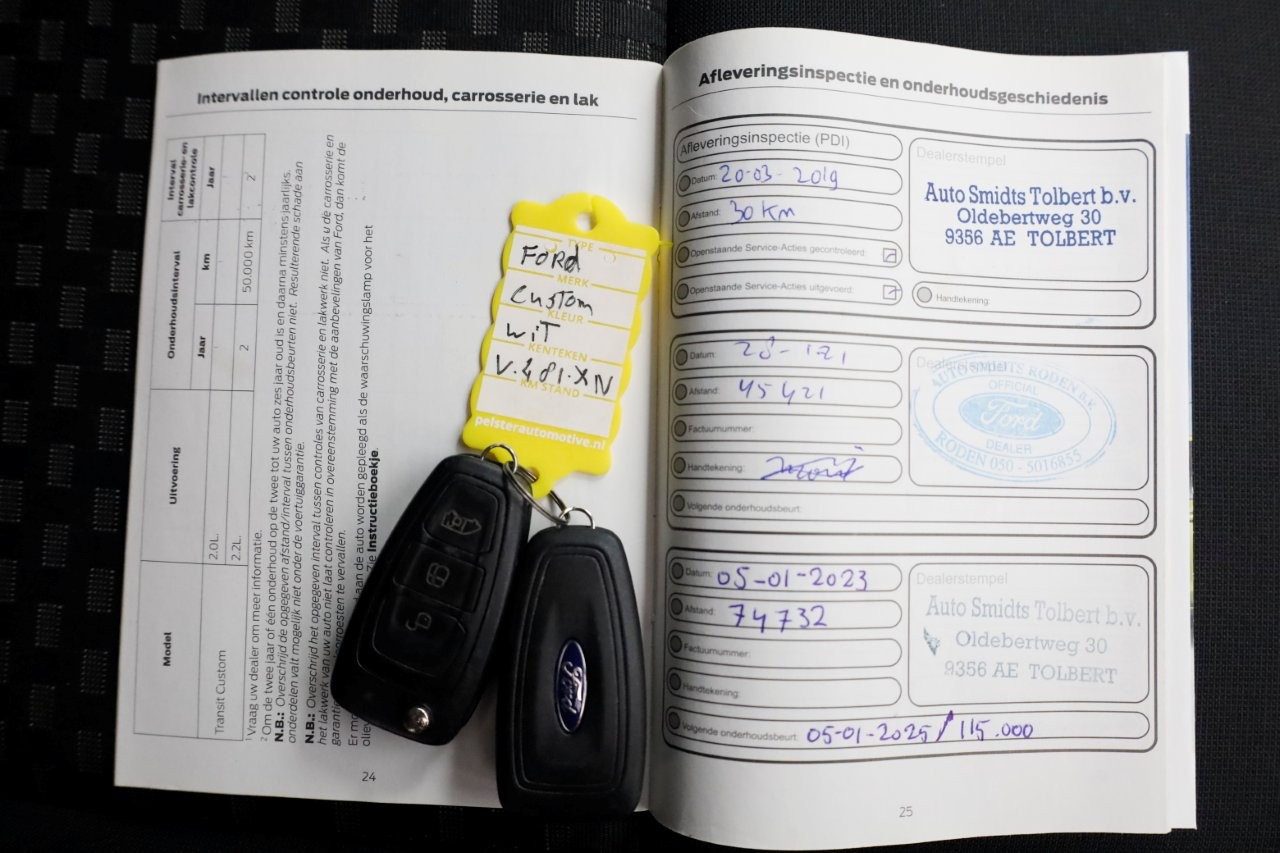 Intervallen controle onderhoud, carrosserie en lak
Model
Uitvoering
Onderhoudsinterval
Interval carrosserie- en lakcontrole
Jaar
km
Jaar
Transit Custom
2.0L.
2.2L.
2
50.000 km
2
¹ Vraag uw dealer om meer informatie.
² Om de twee jaar of één onderhoud op de twee tot uw auto zes jaar oud is en daarna minstens jaarlijks.
N.B.: Overschrijd de opgegeven afstand/interval tussen onderhoudsbeurten niet. Resulterende schade aan
onderdelen valt mogelijk niet onder de voertuiggarantie.
N.B.: Overschrijd het opgegeven interval tussen controles van carrosserie en lakwerk niet. Als u de carrosserie en
het lakwerk van uw auto niet laat controleren in overeenstemming met de aanbevelingen van Ford, dan komt de
te vervallen.
aan de auto worden gepleegd als de waarschuwingslamp voor het
Instructieboekje.
24
TYPE
FORd
MERK
Custom
KLEUR
WiT
KENTEKEN
V.481.XN
KM STAND
pelsterautomotive.nl
Ford
Afleveringsinspectie en onderhoudsgeschiedenis
Afleveringsinspectie (PDI)
Datum: 20-03-2019
Afstand: 30 Km
Openstaande Service-Acties gecontroleerd:
Openstaande Service-Acties uitgevoerd:
Dealerstempel
Auto Smidts Tolbert b.v.
Oldebertweg 30
9356 AE TOLBERT
Handtekening:
Datum:
Afstand: 45421
Factuurnummer:
Handtekening:
Volgende onderhoudsbeurt:
Dealerstempel
AUTO SMIDTS RODEN B.V.
OFFICIAL
Ford
DEALER
RODEN 050 - 5016855
Datum: 05-01-2023
Afstand: 74732
Factuurnummer:
Handtekening:
Dealerstempel
Auto Smidts Tolbert b.v.
Oldebertweg 30
9356 AE TOLBERT
Volgende onderhoudsbeurt: 05-01-2025/115.000
25